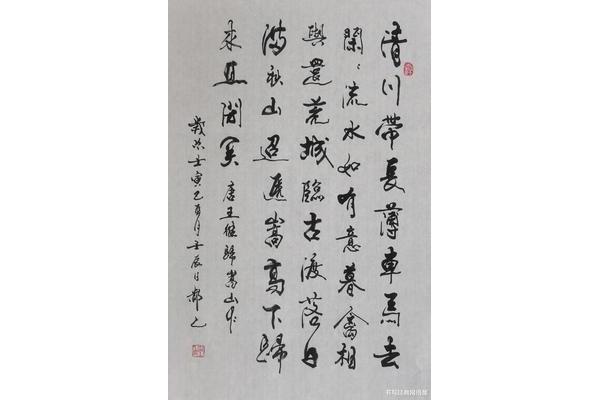 清川帶長薄車馬去
閑〻流水如有意暮禽相
與還荒城臨古渡落日
滿秋山迢遞嵩高下歸
來且閉關
唐王維歸嵩山作
歲次壬寅乙巳月壬辰日